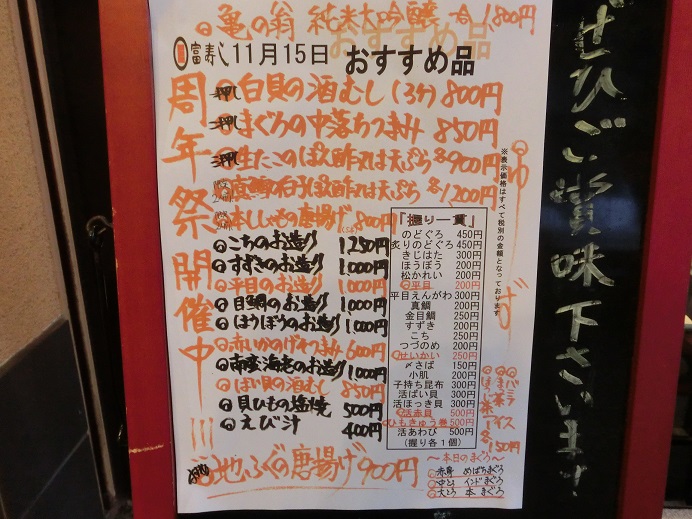 亀の翁 純米大吟醸 一合 1,800円
富寿し 11月15日 おすすめ品
周年祭開催中!!!
一押し 白貝の酒むし(3ケ)800円
二押し まぐろの中落ちつまみ 850円
三押し 生たこのぽん酢又は天ぷら 各900円
真鱈の白子ぽん酢又は天ぷら 各1,200円
本ししゃもの唐揚げ 800円
こちのお造り 1,250円
すずきのお造り 1,000円
平目のお造り 1,000円
目鯛のお造り 1,000円
ほうぼうのお造り 1,000円
赤いかのげそつまみ 600円
南蛮海老のお造り 1,000円
ばい貝の酒むし 850円
貝ひもの塩焼 500円
えび汁 400円
地ふぐの唐揚げ 900円
「握り一貫」
のどぐろ 450円
炙りのどぐろ 450円
きじはた 300円
ほうぼう 200円
松かれい 200円
平貝 200円
平目えんがわ 300円
真鯛 200円
金目鯛 250円
すずき 200円
こち 200円
つづのめ 200円
せいかい 250円
〆さば 150円
小肌 200円
子持ち昆布 300円
活ばい貝 300円
活ほっき貝 300円
活赤貝 500円
ひもきゅう巻 500円
活あわび 500円
(握り各1個)
※表示価格はすべて税別の金額となっております
バニラ
抹茶
ほうじ茶アイス
各150円
～本日のまぐろ～
赤身 めばちまぐろ
中とろ インドまぐろ
大とろ 本まぐろ
ぜひご賞味下さいませ